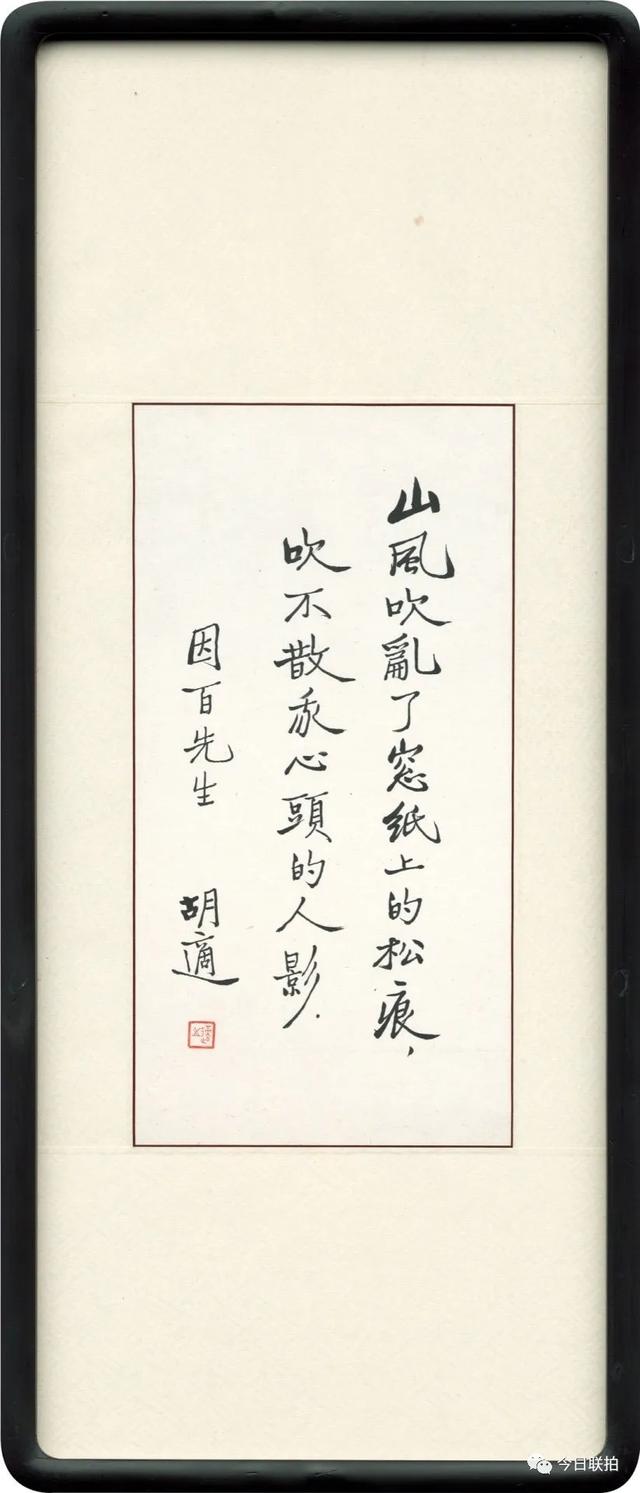 山風吹亂了窓紙上的松痕，
吹不散我心頭的人影．
因百先生
胡適
今日联拍